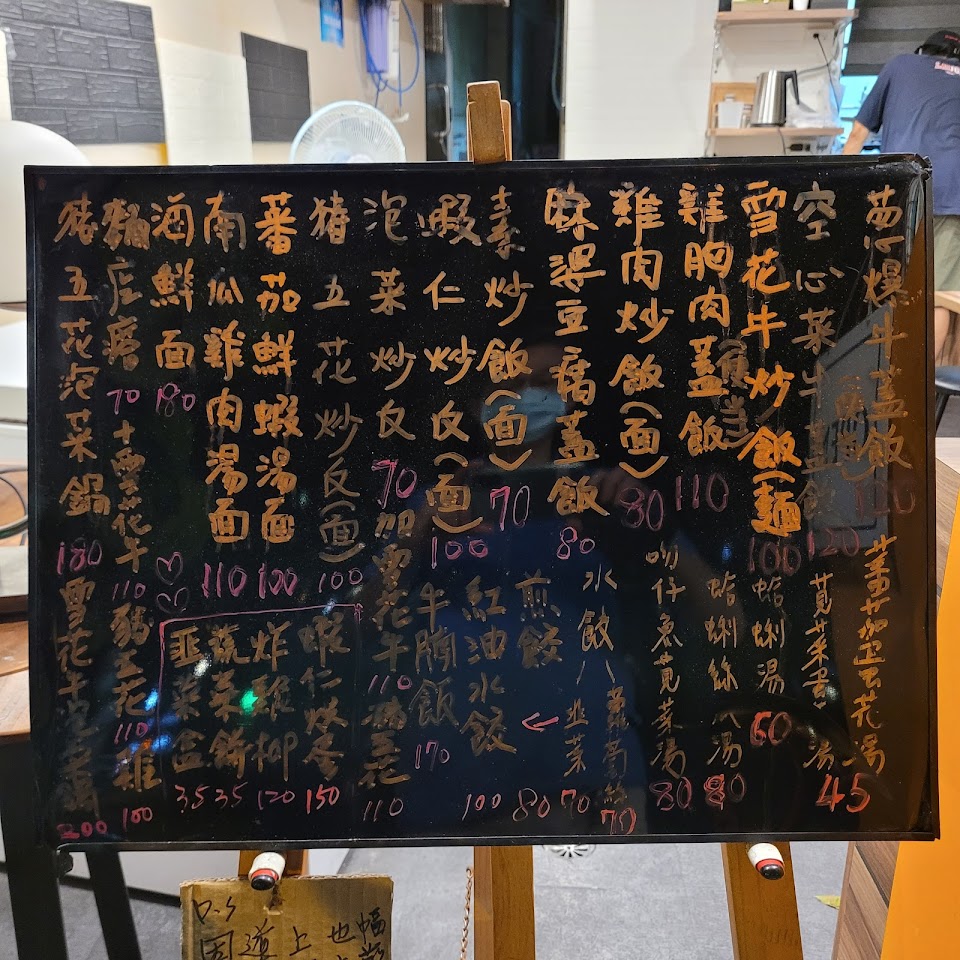 蔥爆牛蓋飯 120
空心菜牛蓋飯 120
雪花牛炒飯(麵 100
雞胸肉蓋飯 110
雞肉炒飯(面) 80
麻婆豆腐蓋飯 80
素炒飯(面) 70
蝦仁炒反(面) 100
泡菜炒反 70 加雪花牛 110 豬五花 110
豬五花炒反(面) 100
蕃茄鮮蝦湯面 100
南瓜雞肉湯面 110
酒鮮面 180
70 十雪花牛 110 豬五花 110 雞 100
豬五花泡菜鍋 180 雪花牛 200
薑茄蛋花湯
莧菜蛋湯 45
蛤蜊湯 60
蛤蜊絲 湯 80
吻仔魚莧菜湯 80
水餃 韭菜 70
蘿蔔絲 70
煎餃 80
紅油水餃 100
牛腩飯 170
蝦仁烘蛋 150
炸雞柳 120
蔬菜餅 35
韭菜盒 35
P.S
因道上也幅